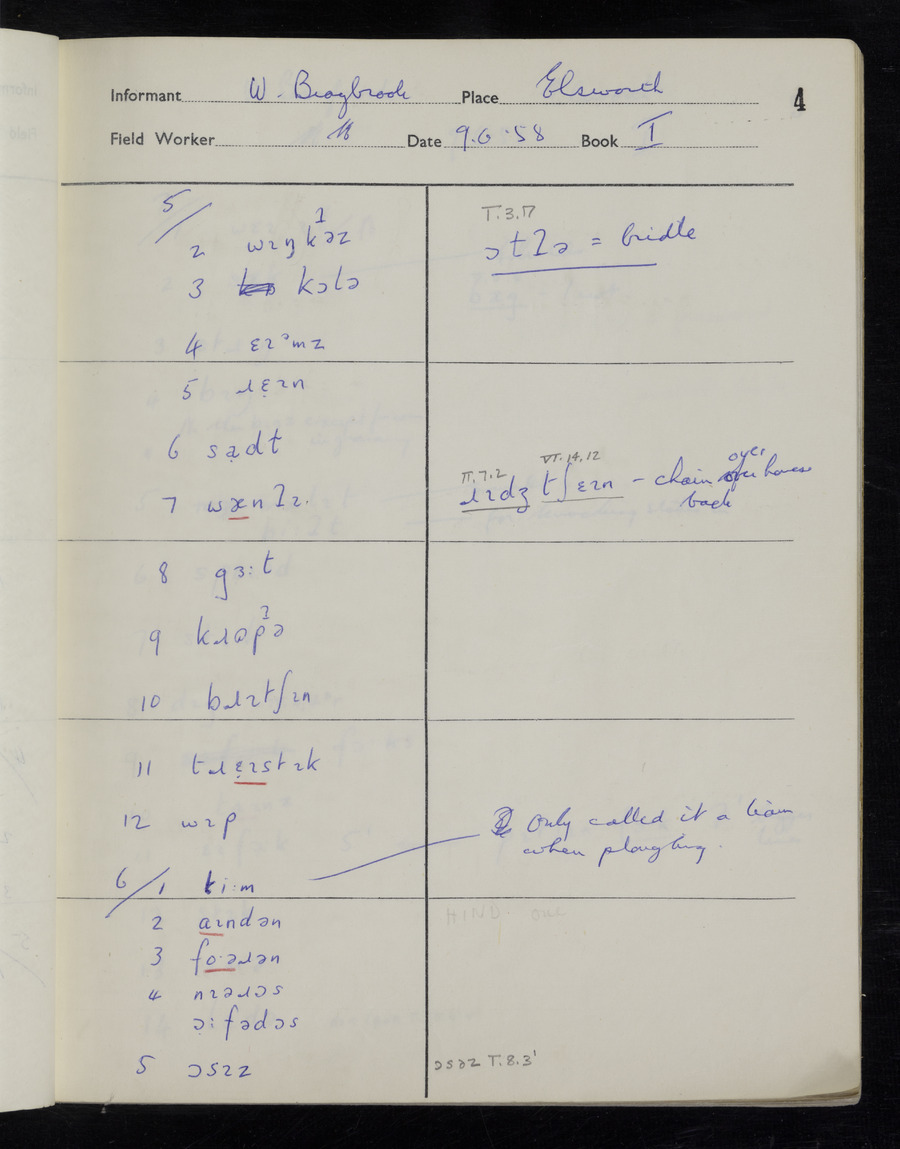 Informant W. Braybrook Place Elsworth 4
Field Worker Date 9.6.58 Book I
5/
2 wɪŋkəz
I
3 kɔlə
4 ɛɪᵊmz
5 ɹɛ̣ɪn
6 sạdt
7 wænIɪ.
8 gɜ:t
9 kɹɒpə
I
10 bɹɪtʃɪn
11 tɹɛ̣ɪstɪk
12 wɪp
6/1 ti:m
2 aɪndən
3 fo·əɹən
4 nɪəɹɔs
ə̣:fədɔs
5 ɔsɪz
T.3.17
ɔtIə = bridle
VI.14.12
II.7.2
ɹɪdʒ tʃɛɪn – chain over horses
back
Only called it a team
when ploughing.
HIND- one
ɔsəz T.8.3'